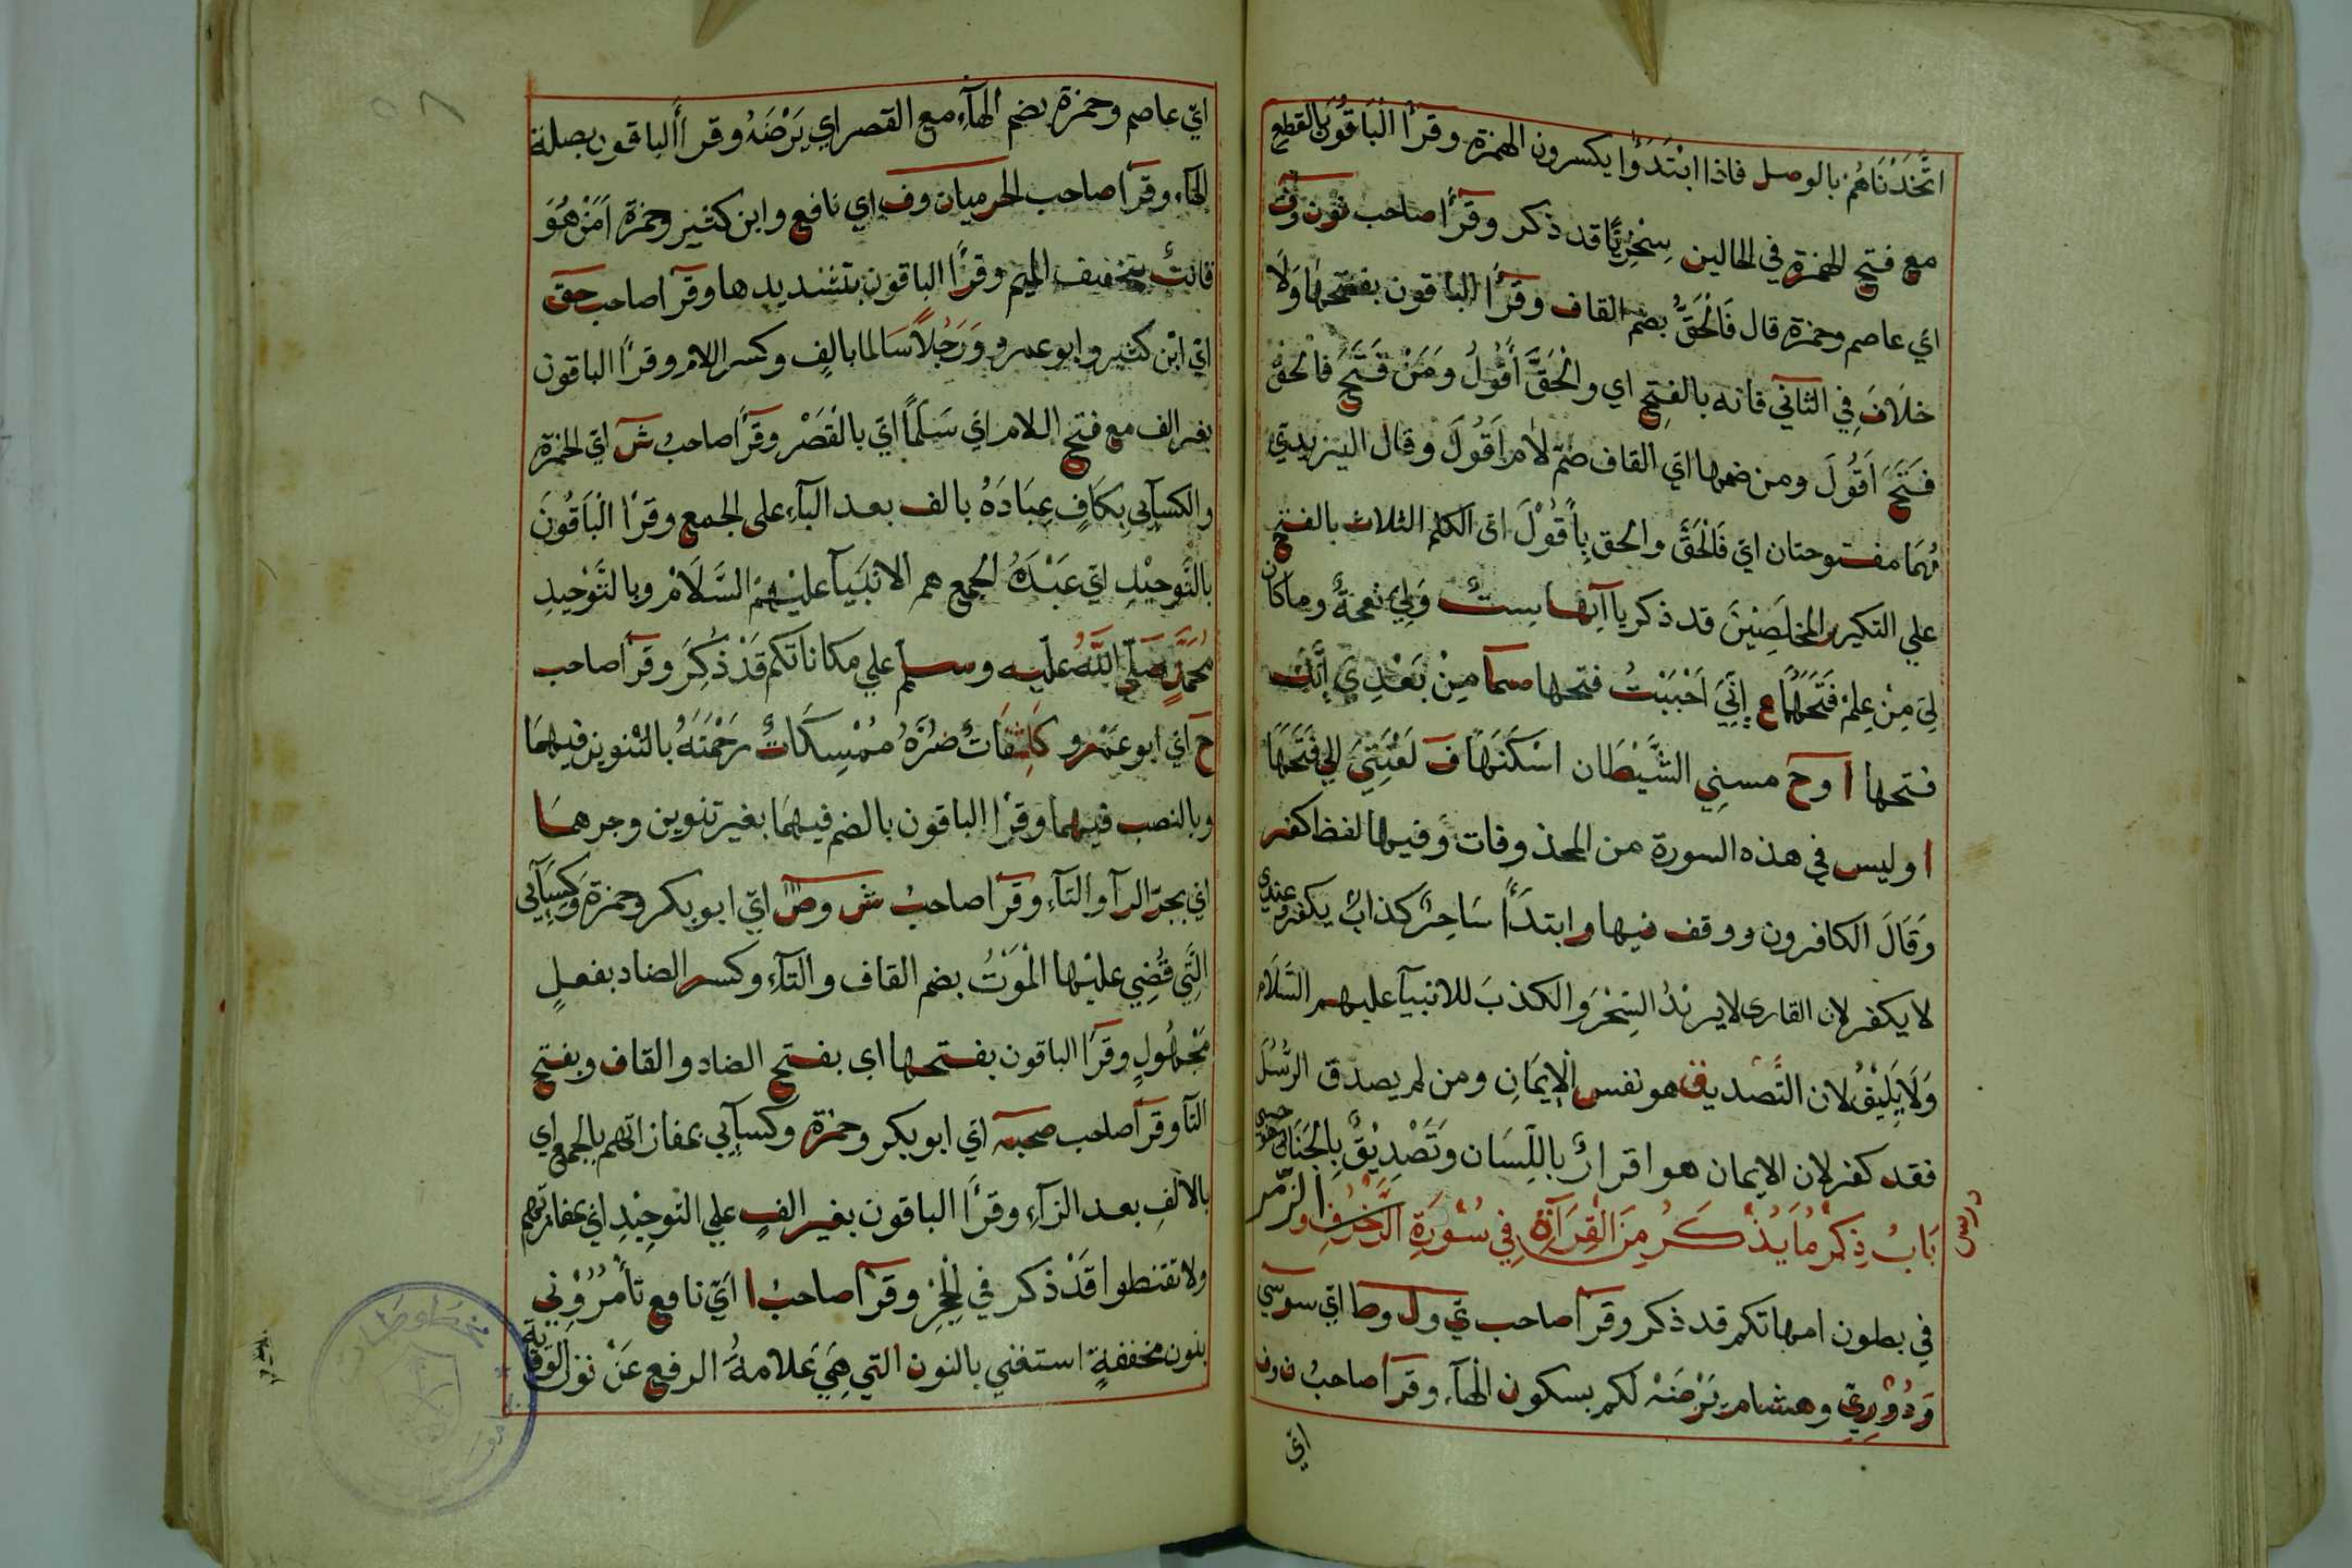 اتَّخَذْنَاهُمْ بالوصل فاذا ابْتَدَؤُا يكسرون الهمزة وقرأ الْبَاقُونَ بالقطع
مع فتح الهمزة في الحالين سِخْرِيًّا قد ذكر وقرأ صاحب نون وف
اي عاصم وحمزة قال فَالْحَقُّ بضم القاف وقرأ الباقون بفتحها وَلَا
خلَافَ في الثاني فانه بالفتح اي والْحَقَّ أَقُولُ وَمَنْ فَتَحَ فالحق
فَتَحَ اَقُولَ ومن ضمها اي القاف ضمّ لام اَقُولَ وقال اليزيدي
هُمَا مفتوحتان اي فَالْحَقَّ والحق بِأَقُوْلَ اي الكلم الثلاث بالفتح
علي التكير المخلَصِيْنَ قد ذكر يا آتها ستٌ وَلِيَ نعجةٌ وما كان
لِيَ مِنْ عِلْمٍ فَتَحَهُمَا ع إِنِّيَ اَحْبَبْتُ فتحها سما مِنْ بَعْدِيَ إِنَّكَ
فتحها ا وح مسني الشَّيْطَان اسْكَنَهَا ف لَعْنَتِيَ الي فَتَحَهَا
ا وليس في هذه السورة من المحذوفات وفيها لفظ كفر
وَقَالَ الكافرون ووقف فيها وابتدَأَ سَاحِرٌ كذابٌ يكفر وعندي
لا يكفر لان القاري لا يريدُ السِحْرَ والكذبَ للانبيآ عليهم السَّلَام
وَلَا يَلِيْقُ لان التَّصديق هو نفس الْاِيمَانِ ومن لم يصدق الرُّسُلَ
فقد كفر لان الايمان هو اقرارٌ باللِّسَان وَتَصْدِيْقٌ بِالجَنَانِ
بَابُ ذِكْرِ مَا يُذْكَرُ مِنَ الْقِرَآةِ فِي سُوْرَةِ الزُّخْرُفِ والزّمر
درس
في بطون امهاتكم قد ذكر وقرأ صاحب ي ول وطا اي سوسي
وَدُوْرِيّ وهشام يَرْضَهْ لكم بسكون الهآء وقرأ صاحبُ ن وف
اي
اي عاصم وحمزة بضم الهآء مع القصر اي يَرْضَهُ وقرأ الباقون بصلة
الهآء وقرأ صاحب الحرميان وف اي نافع وابن كثير وحمزة اَمَنْ هُوَ
قانتٌ بتخفيف الميم وقرأ الباقون بتشديدها وقرأ صاحب حق
اي ابن كثير وابو عمرو وَرَجُلًا سَالما بالفٍ وكسر اللام وقرأ الباقون
بغير الف مع فتح اللام اي سَلَمًا اي بالقَصْر وقرأ صاحبُ ش اي الحمزة
والكسآيي بِكَافٍ عِبَادَهُ بالف بعد البآء على الجمع وقرأ الْبَاقُونَ
بالتَّوحِيْدِ اي عَبْدَهُ الجمع هم الانبيآ عليْهِمُ السَّلَامْ وبالتَّوْحيْدِ
مُحَمَّدٍ صَلَّي اللهُ عليْه وسلّم علي مكاناتكم قَدْ ذُكِرَ وقرأ صاحب
ح اي ابو عَمْرو كَاشِفَاتٌ ضُرَّهُ مُمْسِكَاتٌ رَحْمَتَهُ بالتنوين فيهِمَا
وبالنصب فيهما وقرأ الباقون بالضم فيهِمَا بغير تنوين وجرهما
اي بجرّ الرآ والتآء وقرأ صاحبُ ش وص اي ابو بكر وحمزة وكِسَآيي
الَّتِي قُضِي عليْها الْمَوْتُ بضم القاف والتآء وكسر الضاد بفعلٍ
مَجْهُولٍ وقرَأ الباقون بفتحها اي بفتح الضاد والقاف وبفتح
التآ وقرأ صاحب صحبه اي ابو بكر وحمزة وكسآيي بمفازاتهم بالجمع اي
بالالفِ بعد الزآء وقرأَ الباقون بغير الفٍ علي التوحِيْدِ اي بمفازتهم
ولا تقنطوا قَدْ ذكر في الْحِجْرِ وقرأ صاحبُ ا ايْ نافع تأْمُرُوْنِي
بنون مخففةٍ استغني بالنون التي هِيَ عَلامةُ الرفع عَنْ نون الوقاية